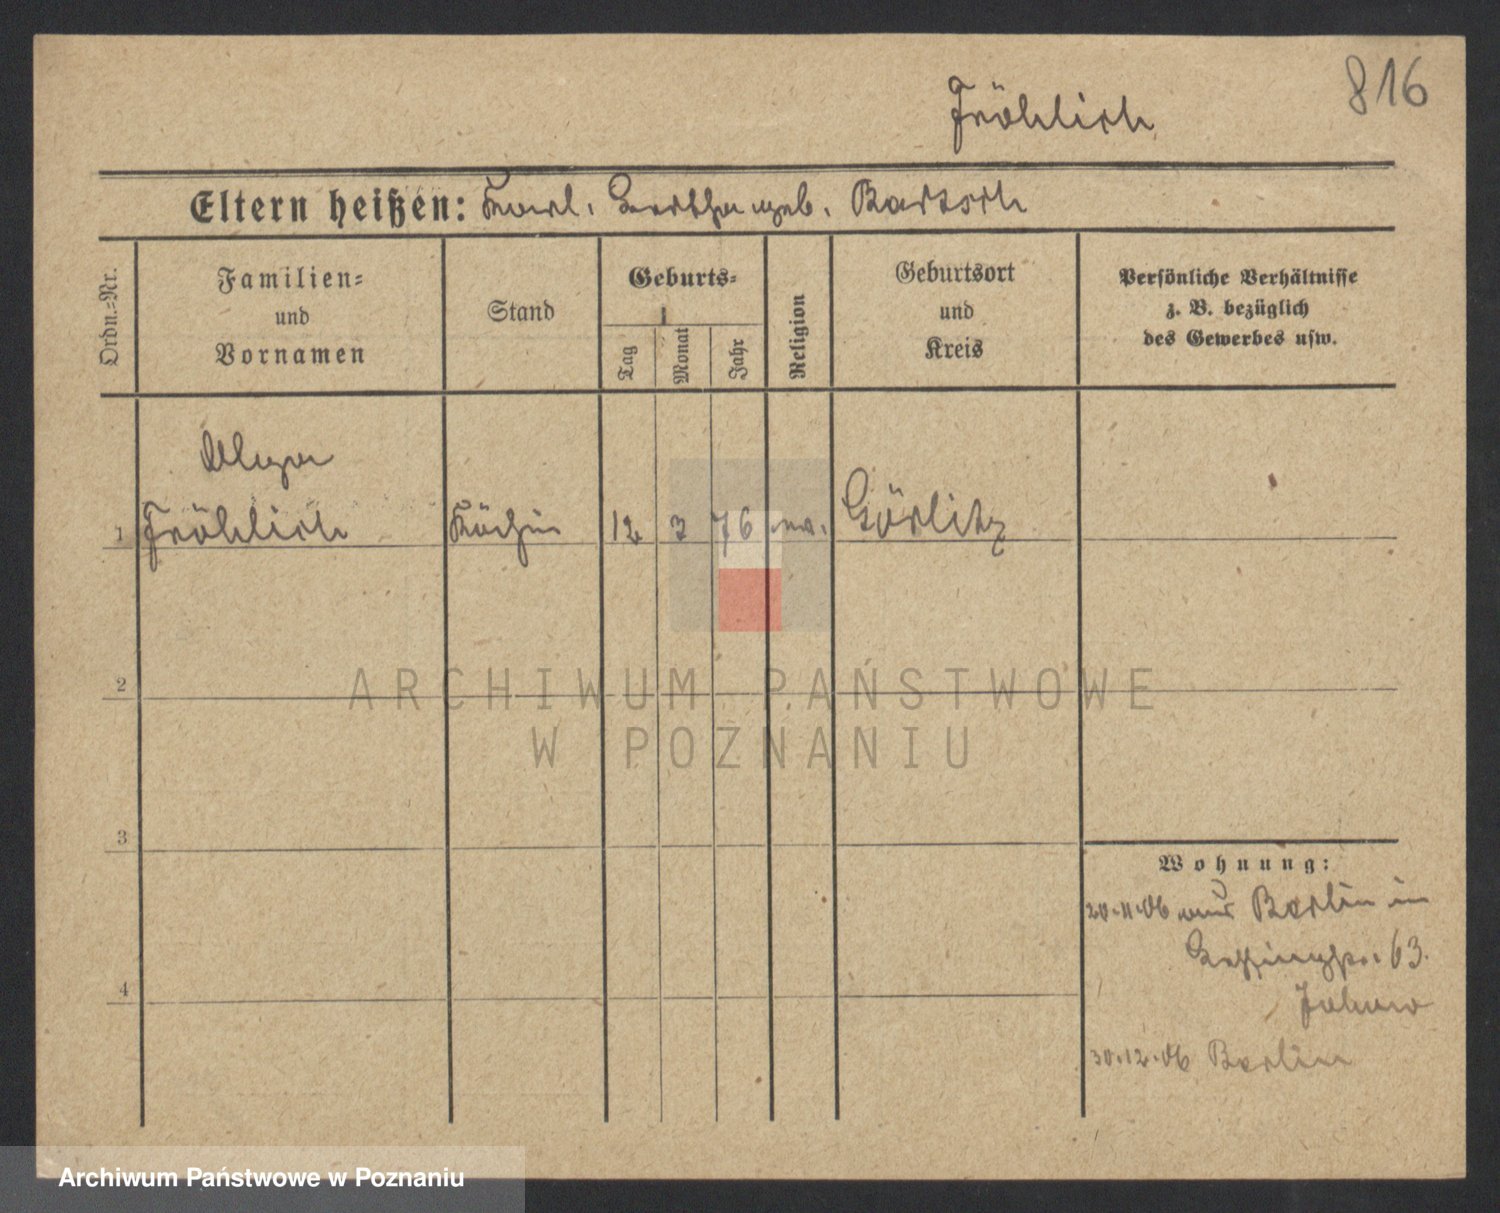 816
Fröhlich
Eltern heißen: Karl. Bertha geb. Bartsch
Ordn.-Nr.
Familien-
und
Vornamen
Stand
Geburts-
Tag
Monat
Jahr
Religion
Geburtsort
und
Kreis
Persönliche Verhältnisse
z. B. bezüglich
des Gewerbes usw.
Olga
1 Fröhlich Köchin 12 3 76 Görlitz
2
ARCHIWUM PAŃSTWOWE
W POZNANIU
3
Wohnung:
20.11.06 aus Berlin in
63.
4
30.12.06 Berlin
Archiwum Państwowe w Poznaniu